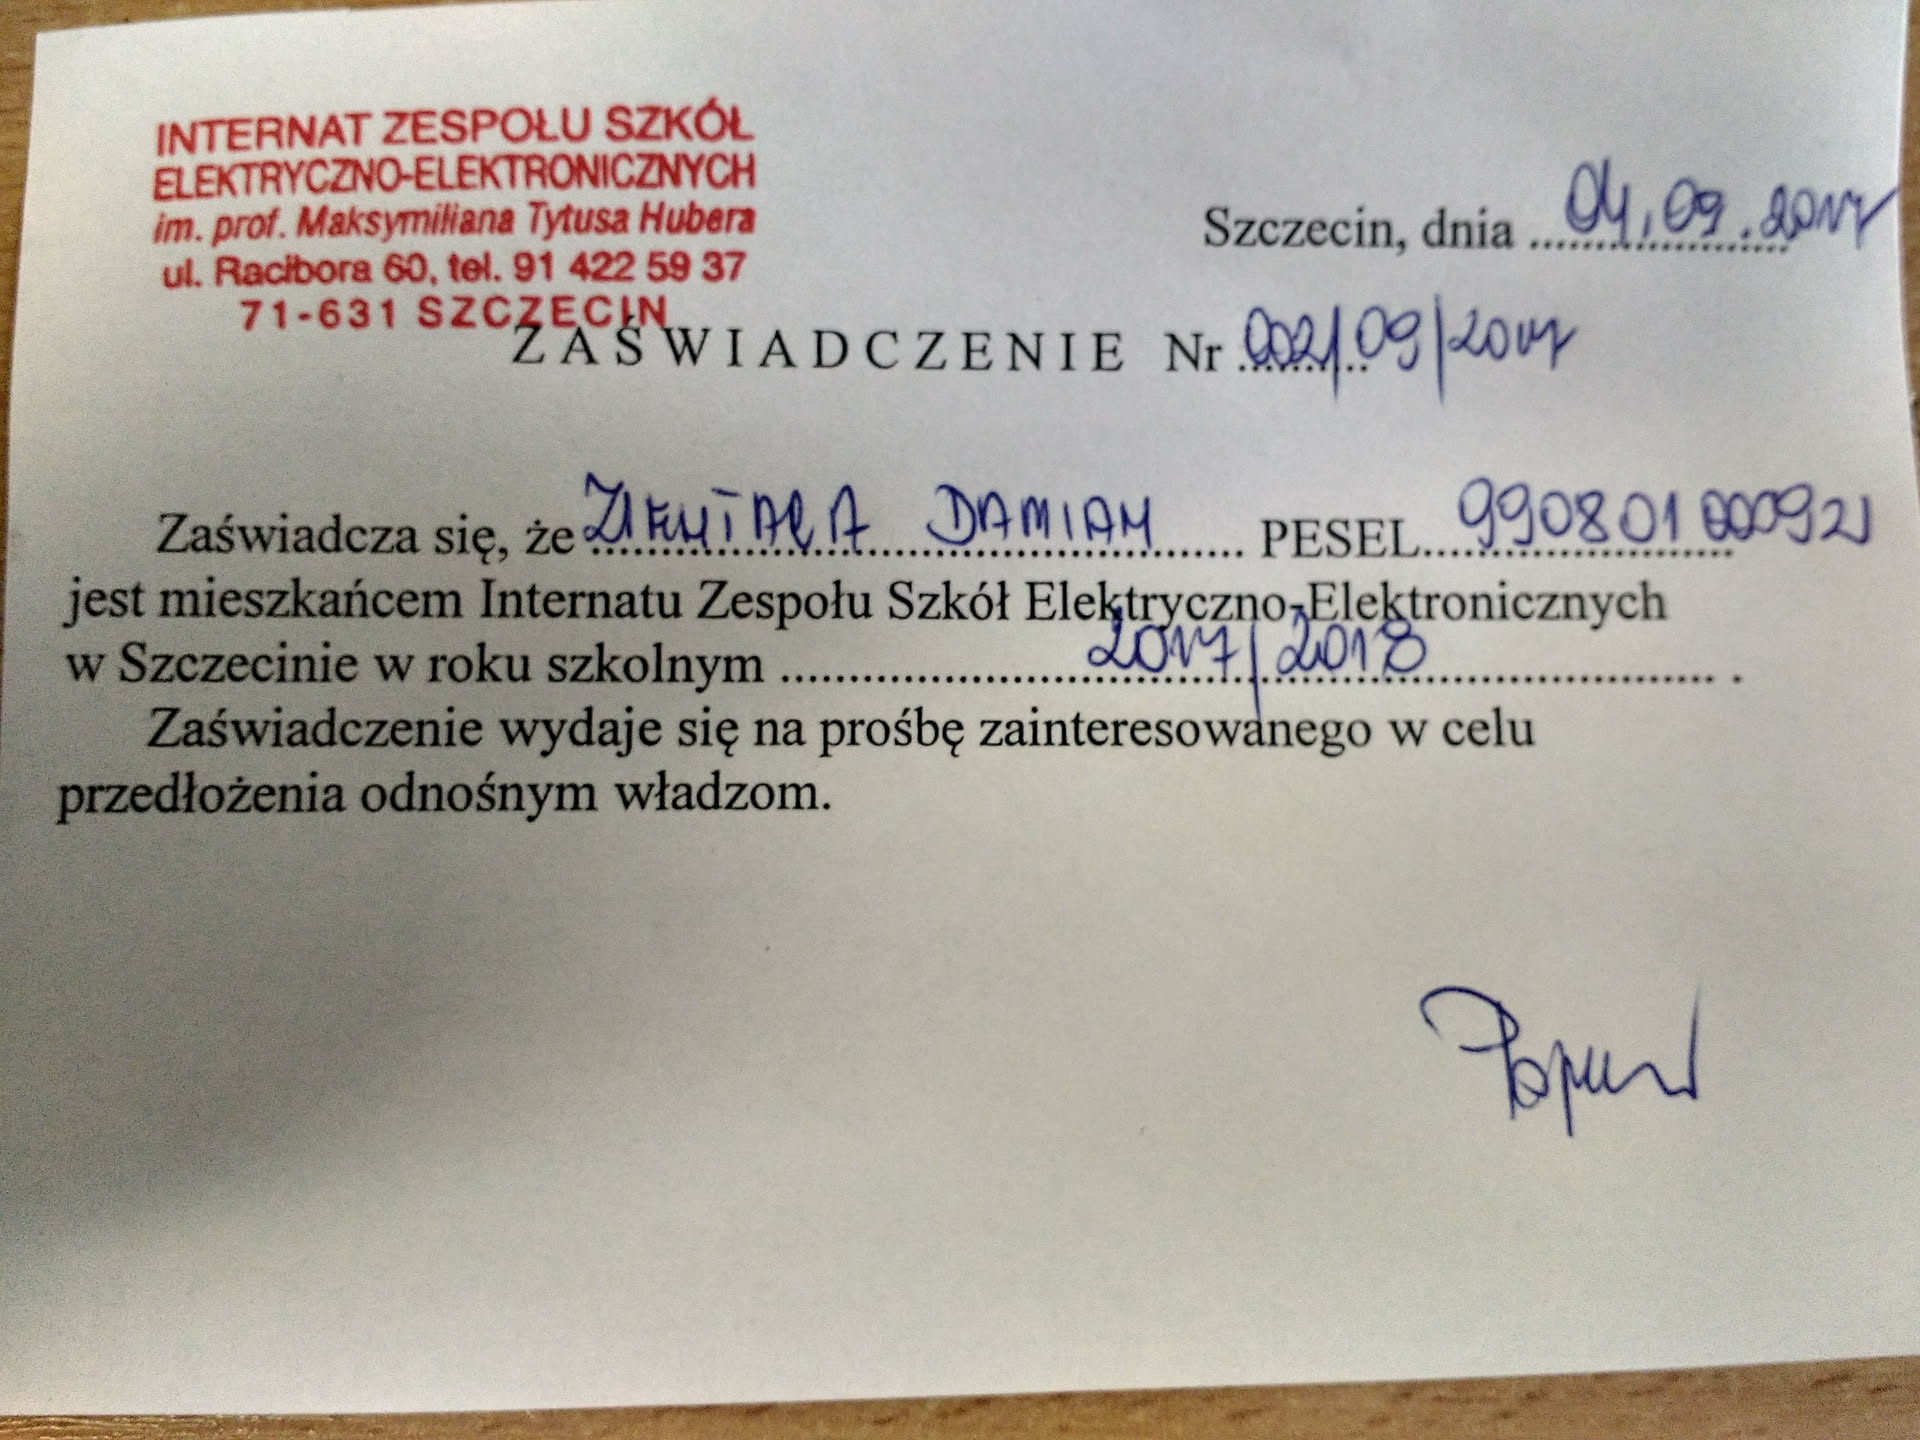 INTERNAT ZESPOŁU SZKÓŁ
ELEKTRYCZNO-ELEKTRONICZNYCH
im. prof. Maksymiliana Tytusa Hubera
ul. Racibora 60, tel. 91 422 59 37
71-631 SZCZECIN
Szczecin, dnia 04.09.2017
ZAŚWIADCZENIE Nr 002/09/2017
Zaświadcza się, że DAMIAN PESEL 99080100092
jest mieszkańcem Internatu Zespołu Szkół Elektryczno-Elektronicznych
w Szczecinie w roku szkolnym 2017/2018 .
Zaświadczenie wydaje się na prośbę zainteresowanego w celu
przedłożenia odnośnym władzom.